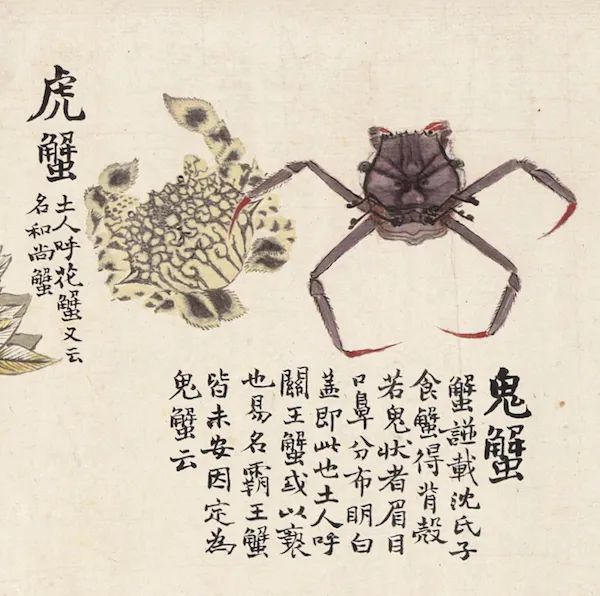 鬼蟹
蟹諩載沈氏子
食蟹得背殼
若鬼狀者眉目
口鼻分布明白
盖即此也土人呼
關王蟹或以褻
也易名霸王蟹
皆未安因定為
鬼蟹云
虎蟹
土人呼花蟹又云
名和尚蟹